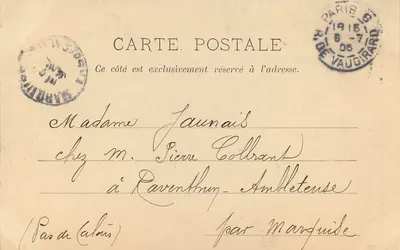 CARTE POSTALE
Ce côté est exclusivement réservé à l'adresse.
PARIS 6
R. DE VAUGIRARD
1815
6-7
05
Madame Jaunais
chez M. Pierre Collrant
à Raventhun-Ambleteuse
(Pas de Calais)
par Marquise